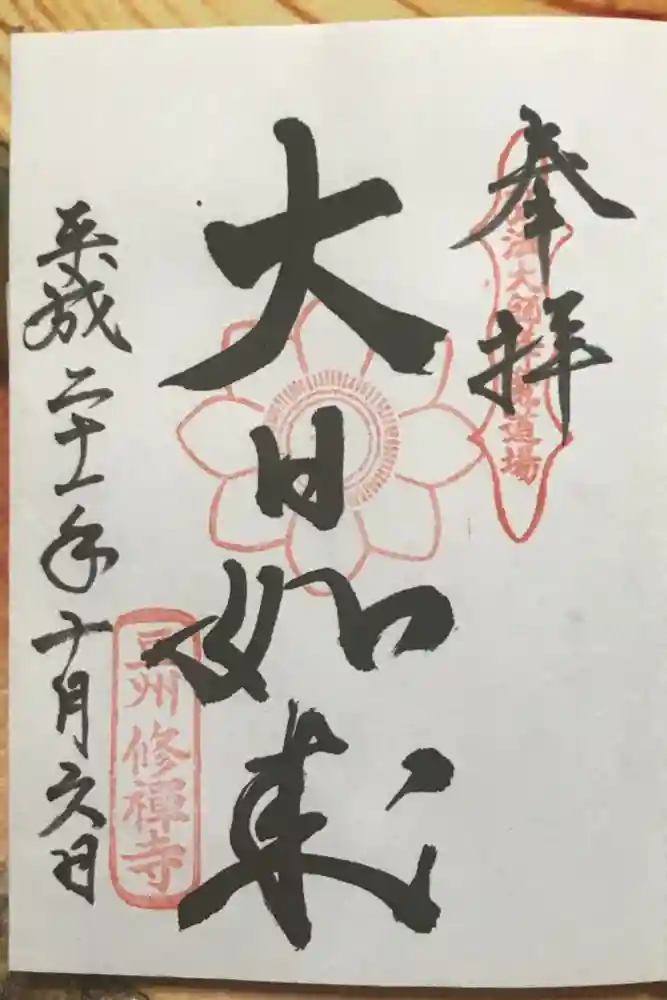 奉拝
法大師 道場
大日如来
平成二十一年十月六日
豆州修禪寺